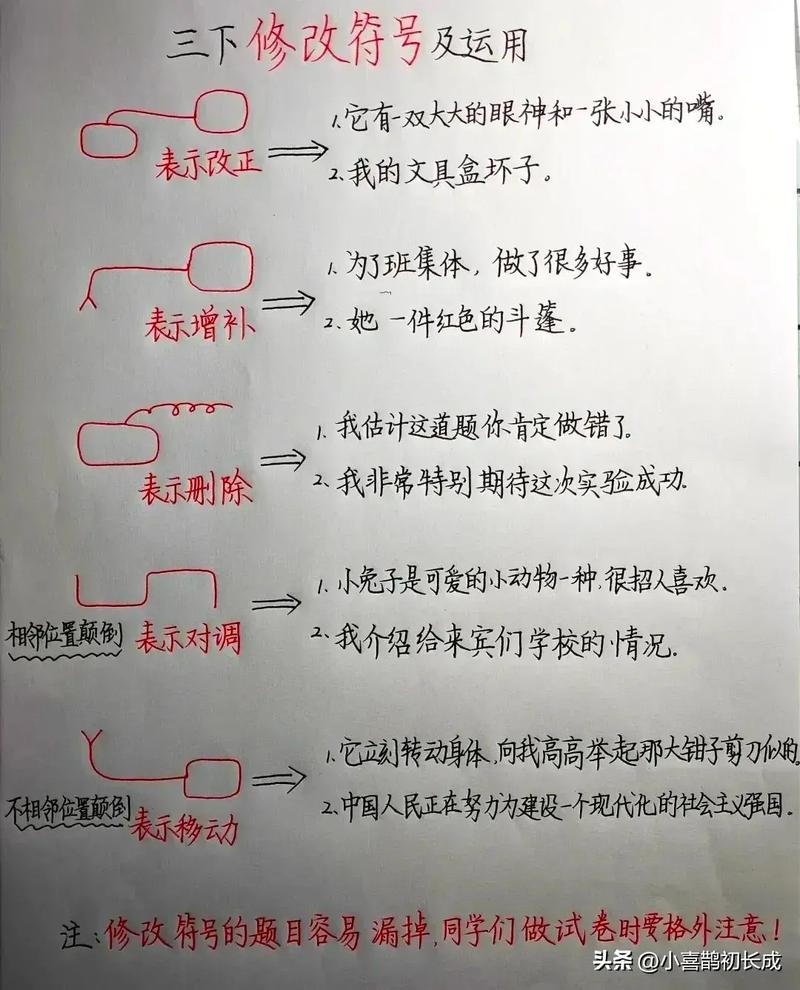 三下修改符号及运用
表示改正
1.它有一双大大的眼神和一张小小的嘴。
2.我的文具盒坏子。
表示增补
1.为了班集体，做了很多好事。
2.她 一件红色的斗蓬。
表示删除
1.我估计这道题你肯定做错了.
2.我非常特别期待这次实验成功.
相邻位置颠倒 表示对调
1.小兔子是可爱的小动物一种,很招人喜欢.
2.我介绍给来宾们学校的情况.
不相邻位置颠倒 表示移动
1.它立刻转动身体,向我高高举起那大钳子剪刀似的。
2.中国人民正在努力为建设一个现代化的社会主义强国.
注:修改符号的题目容易漏掉,同学们做试卷时要格外注意!
头条 @小喜鹊初长成